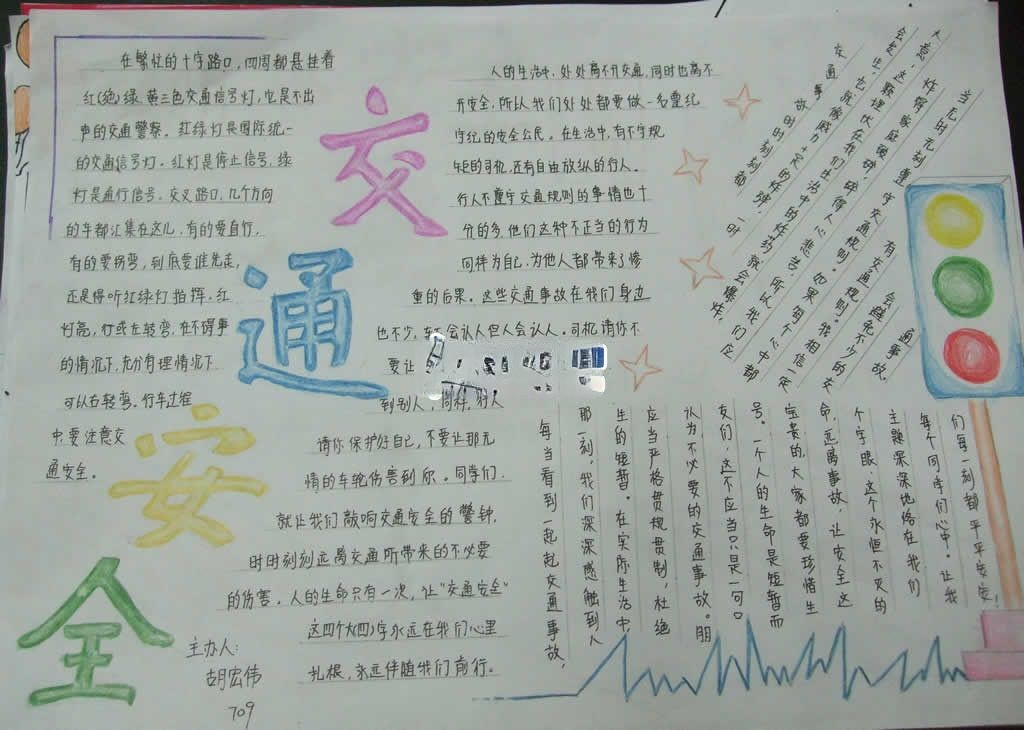 交通安全
在繁忙的十字路口,四周都悬挂着
红(绝)绿 黄三色交通信号灯,它是不出
声的交通警察。红绿灯是国际统一
的交通信号灯。红灯是停止信号,绿
灯是通行信号。交叉路口,几个方向
的车都汇集在这儿,有的要直行,
有的要拐弯,到底要谁先走,
还是得听红绿灯指挥。红
灯亮,
的情况下,充分有理情况下
可以右转弯。行车过程
中,要注意交
通安全。
人的生活中,处处离不开交通,同时也离不
开安全,所以我们处处都要做一名遵纪
守纪的安全公民。在生活中,有不守规
矩的司机,还有自由放纵的行人。
行人不遵守交通规则的事情也十
分的多,他们这种不正当的行为
同样为自己,为他人都带来了惨
重的后果。这些交通事故在我们身边
也不少,车不会认人但人会认人。司机请你不
要让
到别人,同样,行人
请你保护好自己,不要让那无
情的车轮伤害到你。同学们,
就让我们敲响交通安全的警钟,
时时刻刻远离交通所带来的不必要
的伤害。人的生命只有一次,让“交通安全”
这四个大(四)字永远在我们心里
扎根,永远伴随我们前行。
主办人:
胡宏伟
709
交通事故时时刻刻都
会发生,它就像威力十足的炸弹,一时
大意,这颗埋伏在我们生活中的炸药就会爆炸,
炸得家庭破碎,碎得人心悲苦,所以我们应
当无时无刻遵守交通规则。如果每个人心中都
有交通规则。我相信一定
会避免不少的交
通事故。
每当看到一起起交通事故,
那一刻,我们深深感触到人
生的短暂。在实际生活中,
应当严格贯规贯制,杜绝
认为不必要的交通事故。朋
友们,这不应当只是一句口
号。一个人的生命是短暂而
宝贵的,大家都要珍惜生
命,远离事故,让安全这
个字眼,这个永恒不灭的
主题深深地烙在我们
每个同学们心中。让我
们每一刻都平平安安!